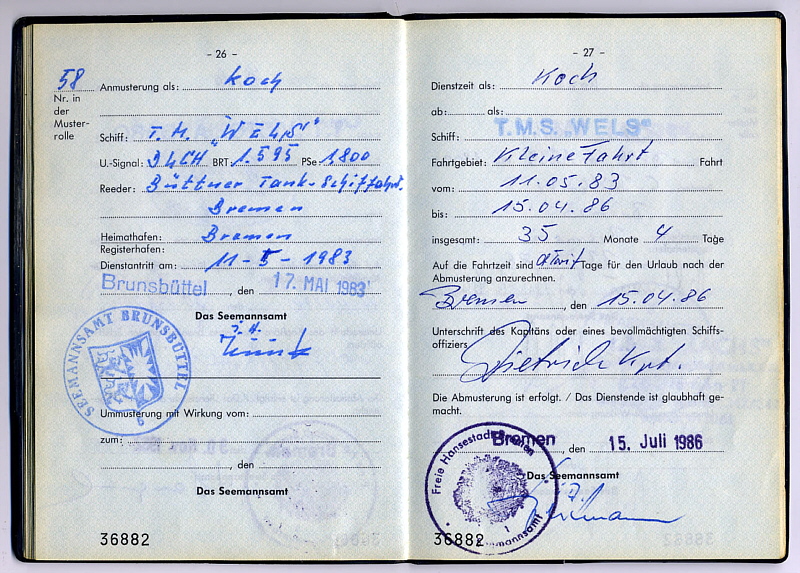 - 26 -
58 Anmusterung als: Koch
Nr. in
der
Muster-
rolle
Schiff: T. M. "WELS"
U.-Signal: DLCH BRT 1.595 PSe 1.800
Reeder: Büttner Tank-Schiffahrt.
Bremen
Heimathafen: Bremen
Registerhafen:
Dienstantritt am: 11-5-1983
Brunsbüttel, den 17. MAI 1983
Das Seemannsamt
SEEMANNSAMT BRUNSBÜTTEL
6
Ummusterung mit Wirkung vom:
zum:
, den
Das Seemannsamt
36882
- 27 -
Dienstzeit als: Koch
ab: als:
Schiff: T.M.S. „WELS"
Fahrtgebiet: Kleine Fahrt Fahrt
vom: 11.05.83
bis: 15.04.86
insgesamt: 35 Monate 4 Tage
Auf die Fahrtzeit sind Tage für den Urlaub nach der
Abmusterung anzurechnen.
Bremen, den 15.04.86
Unterschrift des Kapitäns oder eines bevollmächtigten Schiffs-
offiziers
Dietrich Kpt.
Die Abmusterung ist erfolgt. / Das Dienstende ist glaubhaft ge-
macht.
Bremen, den 15. Juli 1986
Freie Hansestadt Bremen
Das Seemannsamt
1
Seemannsamt
36882